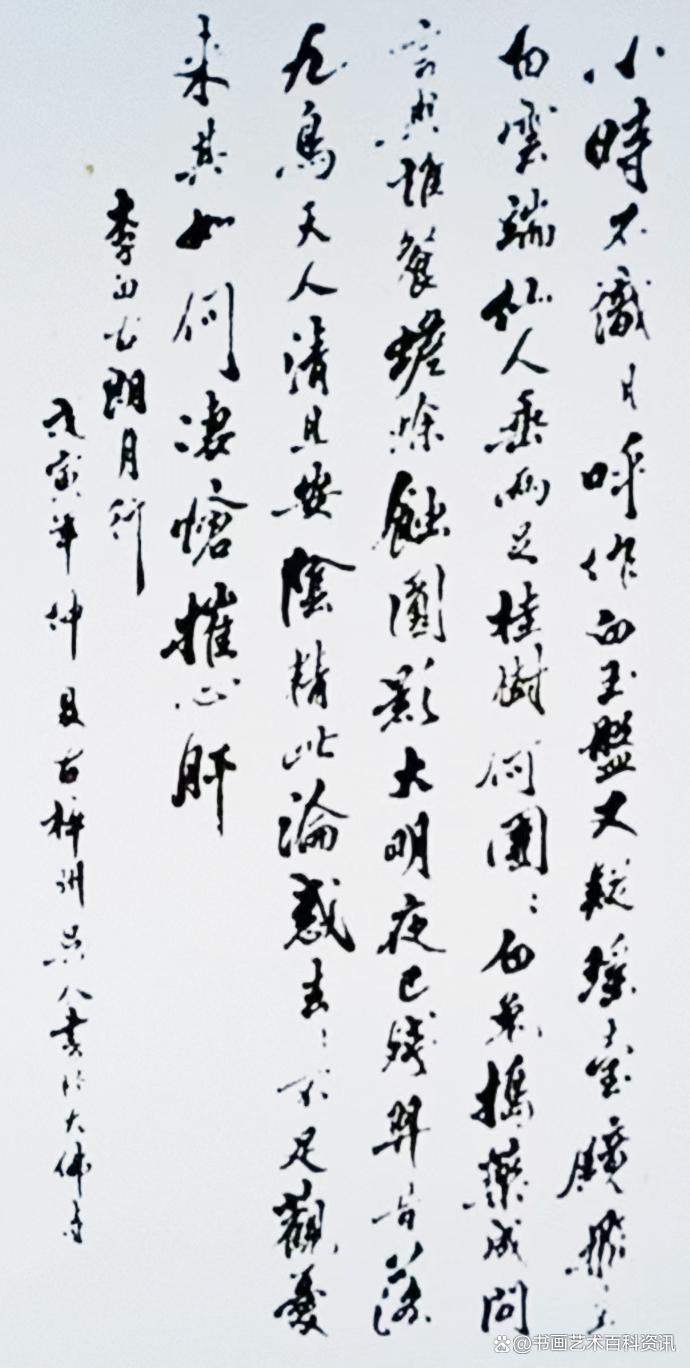 小時不識月呼作白玉盤又疑瑤臺鏡飛在
白雲端仙人垂兩足桂樹何團:白兔搗藥成問
言與誰餐蟾蜍蝕圓影大明夜已殘羿昔落
九烏天人清且安陰精此淪惑去:不足觀憂
來其如何凄愴摧心肝
李白古朗月行
戊寅年仲夏古梓州人書於大佛寺
@书画艺术百科资讯